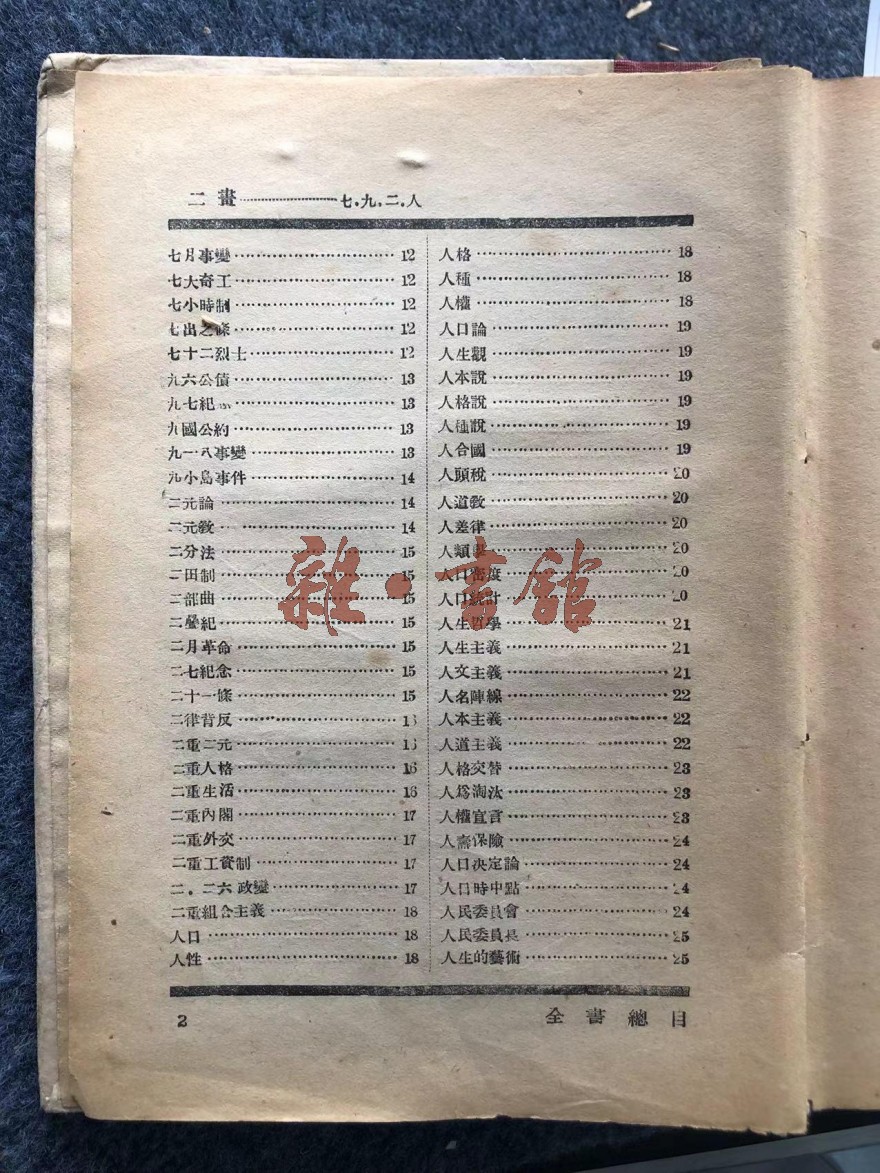 二畫………………七.九.二.人
七月事變………………12
七大奇工………………12
七小時制………………12
七出之條………………12
七十二烈士………………12
九六公債………………13
九七紀………………13
九國公約………………13
九一·八事變………………13
九小島事件………………14
二元論………………14
二元教………………14
二分法………………15
二田制………………15
二部曲………………15
二疊紀………………15
二月革命………………15
二七紀念………………15
二十一條………………15
二律背反………………
二重二元………………
二重人格………………16
二重生活………………16
二重內閣………………17
二重外交………………17
二重工資制………………17
二.二六政變………………17
二重組合主義………………18
人口………………18
人性………………18
人格………………18
人種………………18
人權………………18
人口論………………19
人生觀………………19
人本說………………19
人格說………………19
人種說………………19
人合國………………19
人頭稅………………20
人道教………………20
人差律………………20
人類………………20
人口密度………………20
人口統計………………20
人生哲學………………21
人生主義………………21
人文主義………………21
人名陣線………………22
人本主義………………22
人道主義………………22
人格交替………………23
人爲淘汰………………23
人權宣言………………23
人壽保險………………24
人口決定論………………24
人口時中點………………24
人民委員會………………24
人民委員長………………25
人生的藝術………………25
雜·書館
2
全書總目